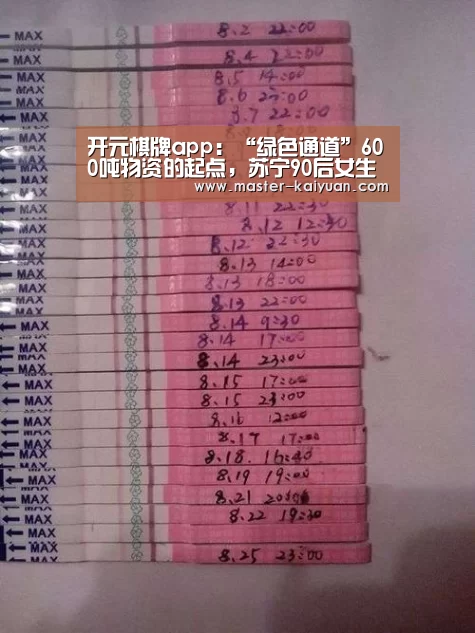 MAX 8.2 22:00
MAX 8.4 22:00
MAX 8.5 14:00
MAX 8.6 23:00
MAX 8.7 22:00
MAX
开元棋牌app：“绿色通道”60
0吨物资的起点，苏宁90后女生
www.master-kaiyuan.com
MAX 8.11 22:30
MAX 8.12 12:30
MAX 8.12 22:30
MAX 8.13 14:00
MAX 8.13 18:00
MAX 8.13 22:00
MAX 8.14 9:30
MAX 8.14 17:00
MAX 8.14 23:00
MAX 8.15 17:00
MAX 8.15 23:00
MAX 8.16 12:00
MAX 8.17 17:00
MAX 8.18 16:40
MAX 8.19 19:00
MAX 8.21 20:00
MAX 8.22 19:30
MAX
MAX 8.25 23:00